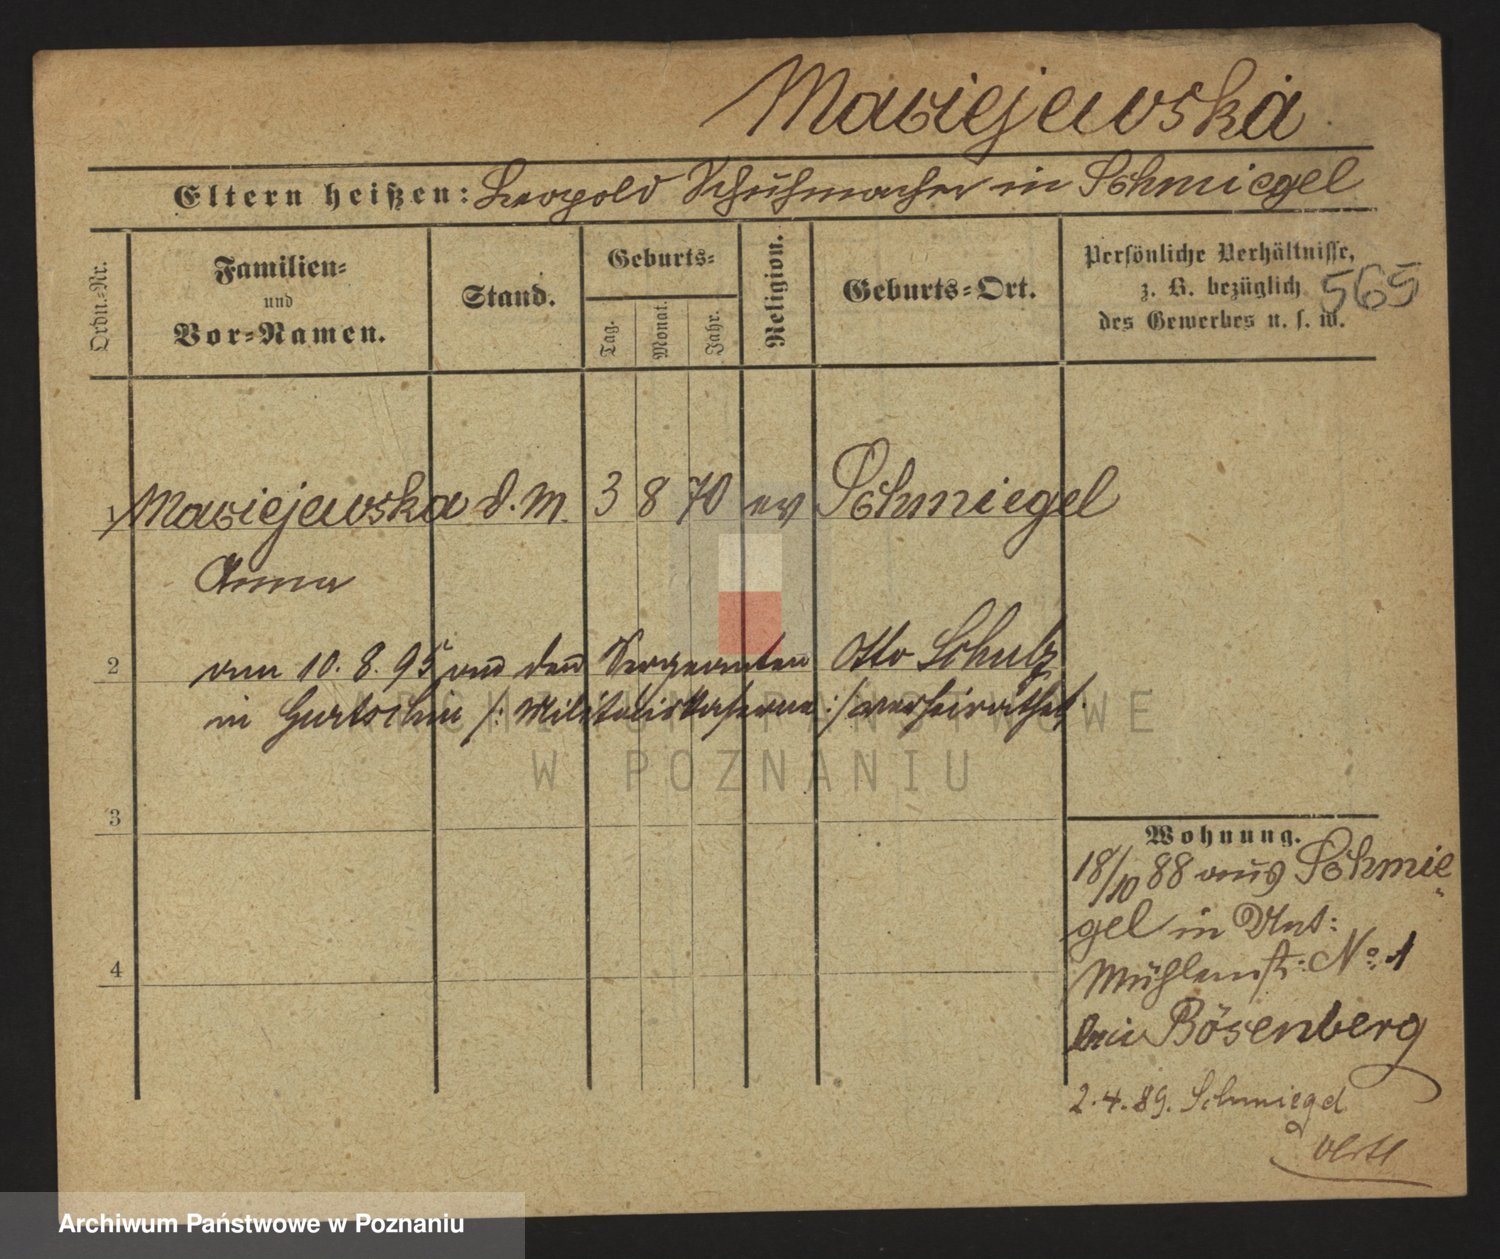 Maciejewska
Eltern heißen: Leopold Schuhmacher in Schmiegel
Ordn.-Nr.
Familien-
und
Vor-Namen.
Stand.
Geburts-
Tag.
Monat.
Jahr.
Religion.
Geburts-Ort.
Persönliche Verhältnisse,
z. B. bezüglich
des Gewerbes u. s. w.
565
1 Maciejewska d. M. 3 8 70 ev Schmiegel
Anna
2
am 10. 8. 95 an den Sergeanten Otto Schulz
in Gurtschin /: Militäriskaserne :/ verheirathet.
3
4
Wohnung.
18/10 88 aus Schmie-
gel in Unt:
Mühlenstr. No. 1
bei Bösenberg
2. 4. 89. Schmiegel
ARCHIWUM PAŃSTWOWE
W POZNANIU
Archiwum Państwowe w Poznaniu